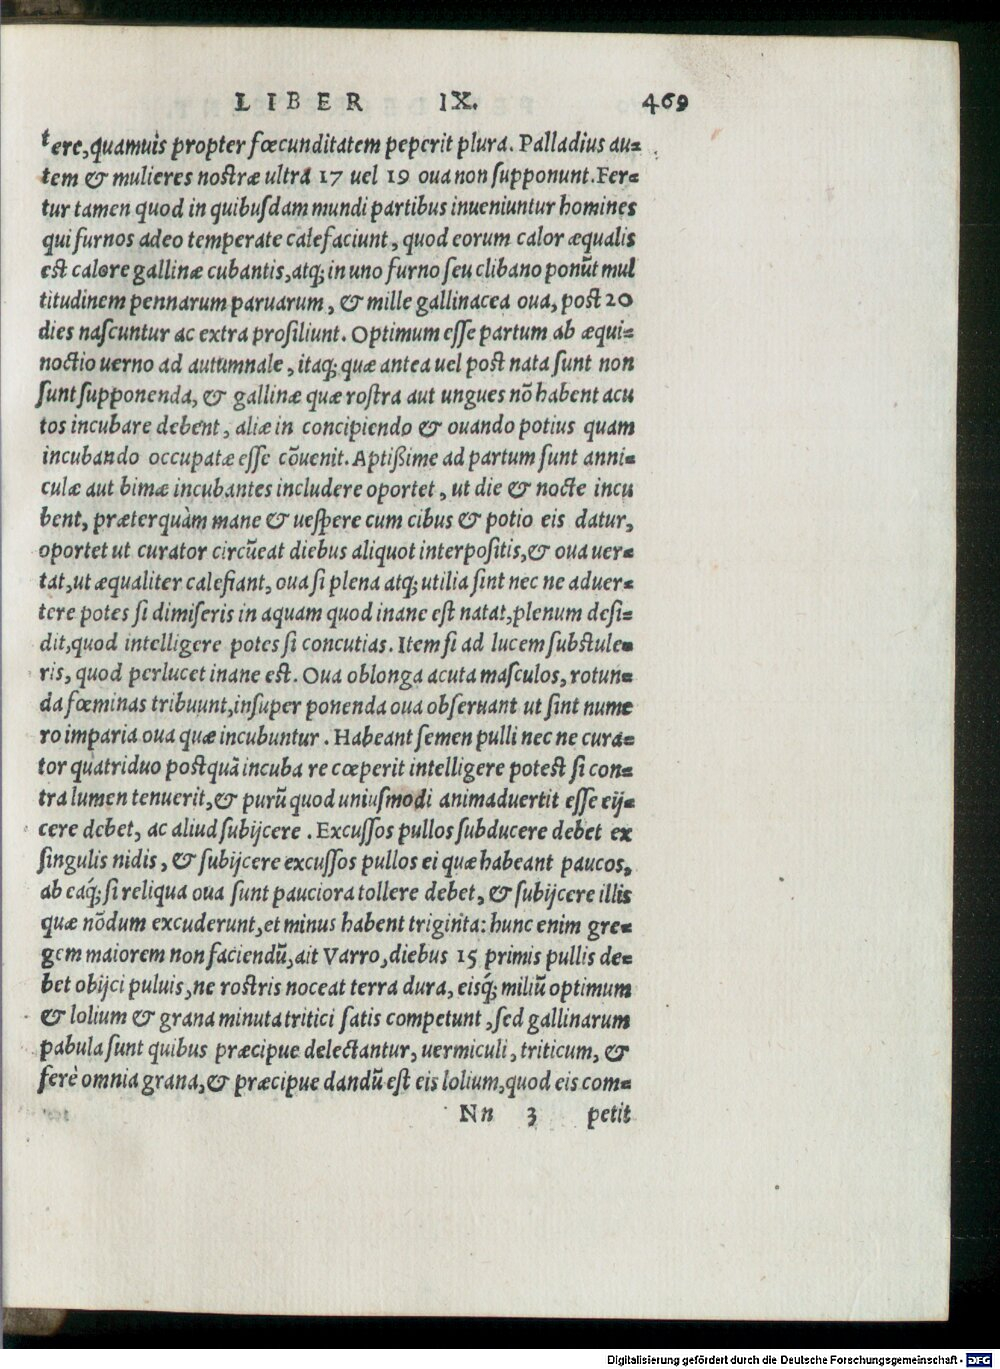 LIBER IX. 469
tere, quamuis propter fœcunditatem peperit plura. Palladius au-
tem & mulieres nostræ ultra 17 uel 19 oua non supponunt. Fer-
tur tamen quod in quibusdam mundi partibus inueniuntur homines
qui furnos adeo temperate calefaciunt, quod eorum calor æqualis
est calore gallinæ cubantis, atq; in uno furno seu clibano ponũt mul
titudinem pennarum paruarum, & mille gallinacea oua, post 20
dies nascuntur ac extra prosiliunt. Optimum esse partum ab æqui-
noctio uerno ad autumnale, itaq; quæ antea uel post nata sunt non
sunt supponenda, & gallinæ quæ rostra aut ungues nõ habent acu
tos incubare debent, aliæ in concipiendo & ouando potius quam
incubando occupatæ esse cõuenit. Aptißime ad partum sunt anni-
culæ aut bimæ incubantes includere oportet, ut die & nocte incu
bent, præterquàm mane & uespere cum cibus & potio eis datur,
oportet ut curator circũeat diebus aliquot interpositis, & oua uer-
tat, ut æqualiter calefiant, oua si plena atq; utilia sint nec ne aduer-
tere potes si dimiseris in aquam quod inane est natat, plenum desi-
dit, quod intelligere potes si concutias. Item si ad lucem substule-
ris, quod perlucet inane est. Oua oblonga acuta masculos, rotun-
da fœminas tribuunt, insuper ponenda oua obseruant ut sint nume
ro imparia oua quæ incubuntur. Habeant semen pulli nec ne cura-
tor quatriduo postquã incuba re cœperit intelligere potest si con-
tra lumen tenuerit, & purũ quod uniusmodi animaduertit esse eij-
cere debet, ac aliud subijcere. Excussos pullos subducere debet ex
singulis nidis, & subijcere excussos pullos ei quæ habeant paucos,
ab eaq́; si reliqua oua sunt pauciora tollere debet, & subijcere illis
quæ nõdum excuderunt, et minus habent triginta: hunc enim gre-
gem maiorem non faciendũ, ait Varro, diebus 15 primis pullis de-
bet obijci puluis, ne rostris noceat terra dura, eisq́; miliũ optimum
& lolium & grana minuta tritici satis competunt, sed gallinarum
pabula sunt quibus præcipue delectantur, uermiculi, triticum, &
ferè omnia grana, & præcipue dandũ est eis lolium, quod eis com-
Nn 3 petit
Digitalisierung gefördert durch die Deutsche Forschungsgemeinschaft - DFG